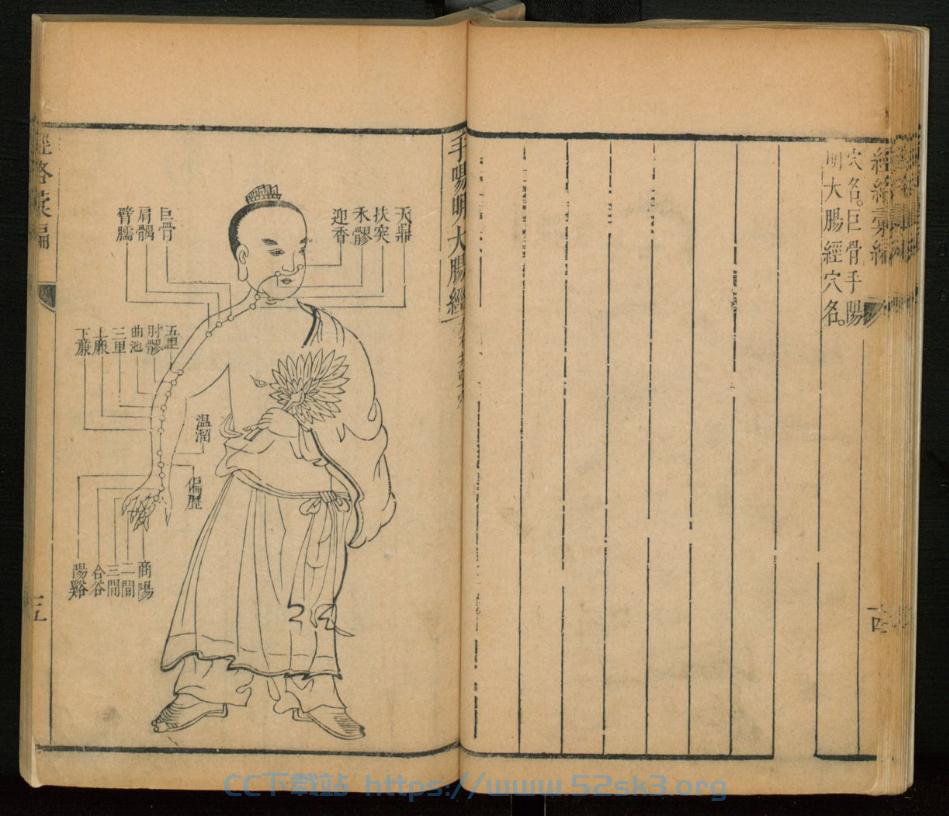 經絡彙編
穴名。巨骨手陽
明大腸經穴名。
手陽明大腸經
天鼎
扶突
禾髎
迎香
巨骨
肩髃
臂臑
五里
肘髎
曲池
三里
上廉
下廉
溫溜
偏歷
商陽
二間
三間
合谷
陽谿
經絡彙編
CC下载站 https://www.52sk3.org